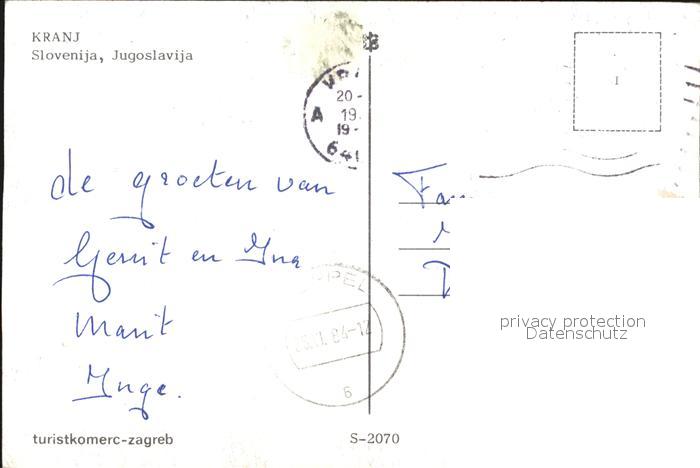 KRANJ
Slovenija, Jugoslavija
20 -
A 19.
19 -
641
I
de groeten van
Gerrit en Ina
Marit
Inge.
Fa..
PPEL
84-12
6
privacy protection
Datenschutz
turistkomerc-zagreb
S-2070